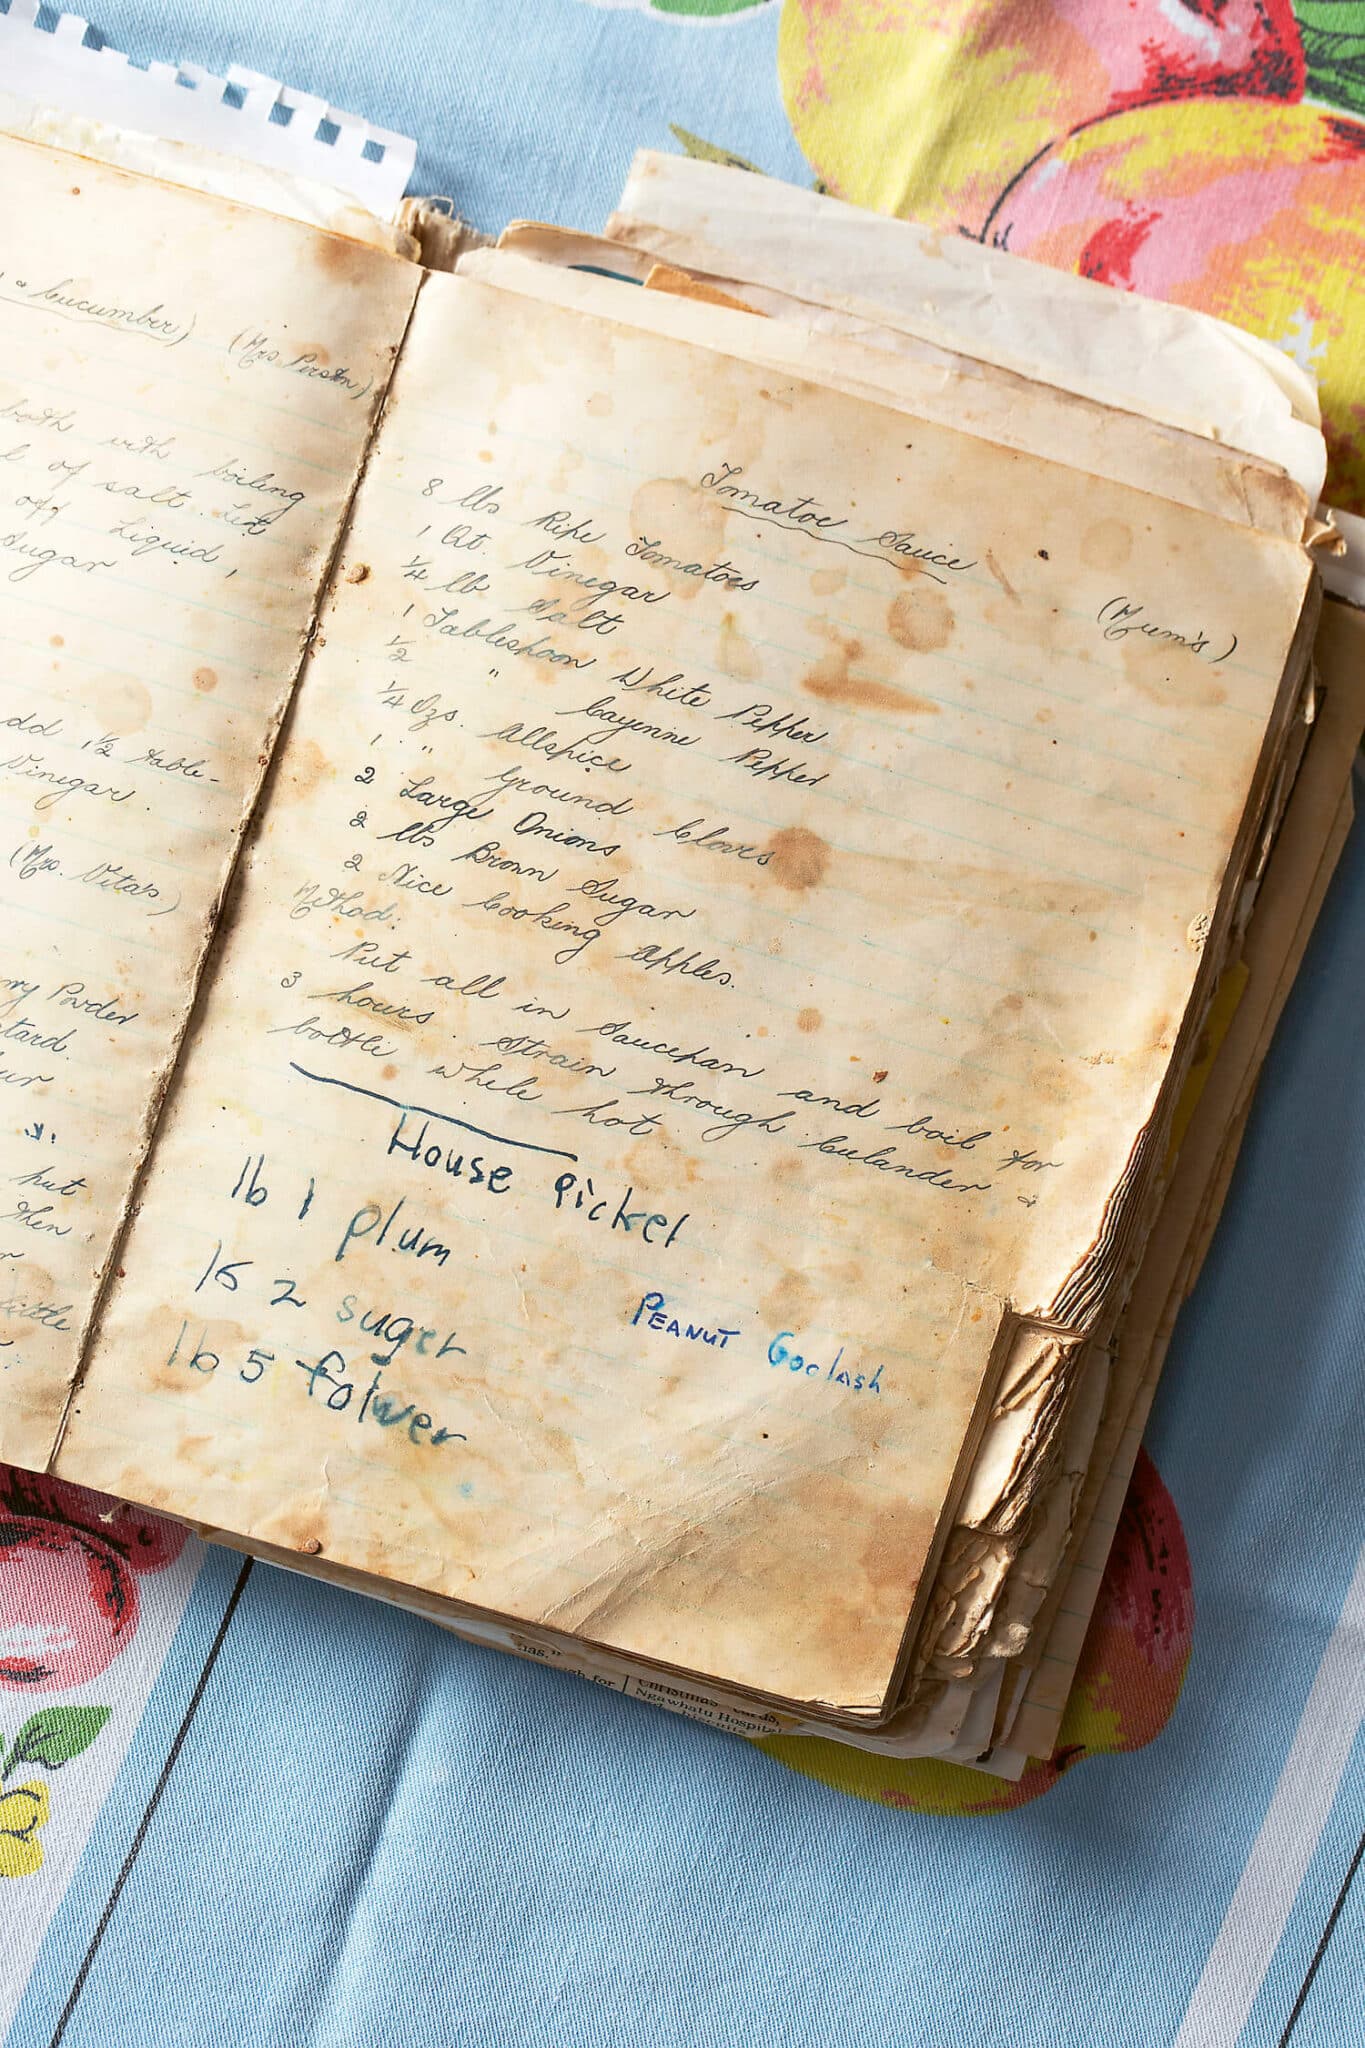 Cucumber) (Mrs. Perston)
both with boiling
of salt. Let
off Liquid,
Sugar
add 1½ table-
Vinegar.
(Mrs. Vita's)
Powder
put
then
little
Tomatoe Sauce
(Mum's)
8 lbs Ripe Tomatoes
1 Qt. Vinegar
¼ lb Salt
1 Tablespoon White Pepper
½ " Cayenne Pepper
¼ Ozs. Allspice
1 " Ground Cloves
2 Large Onions
2 lbs Brown Sugar
2 Nice Cooking Apples.
Method:
Put all in Saucepan and boil for
3 hours. Strain through Culander &
bottle while hot.
House Picket
lb 1 plum
lb 2 suger
lb 5 folwer
PEANUT Goolash
Christmas cards,
Ngawhatu Hospital
biscuits